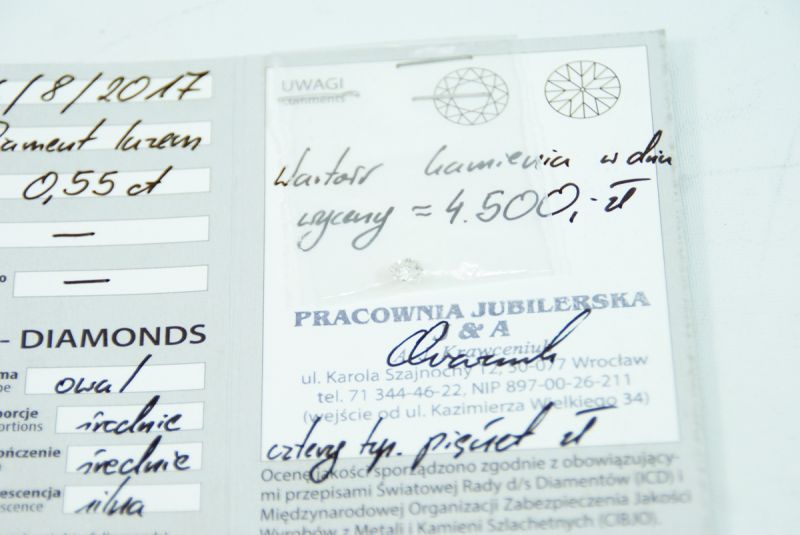 /8/2017
luzem
0,55 ct
—
—
- DIAMONDS
owal
porcje
ortions
średnie
ończenie
średnie
escencja
scence
silna
UWAGI
comments
Wartość kamienia w dniu
wyceny = 4.500,- zł
PRACOWNIA JUBILERSKA
& A
Krawceniuk
ul. Karola Szajnochy 12, 50-077 Wrocław
tel. 71 344-46-22, NIP 897-00-26-211
(wejście od ul. Kazimierza Wielkiego 34)
cztery tys. pięćset zł
Ocenę jakości sporządzono zgodnie z obowiązujący-
mi przepisami Światowej Rady d/s Diamentów (ICD) i
Międzynarodowej Organizacji Zabezpieczenia Jakości
Wyrobów z Metali i Kamieni Szlachetnych (CIBJO).